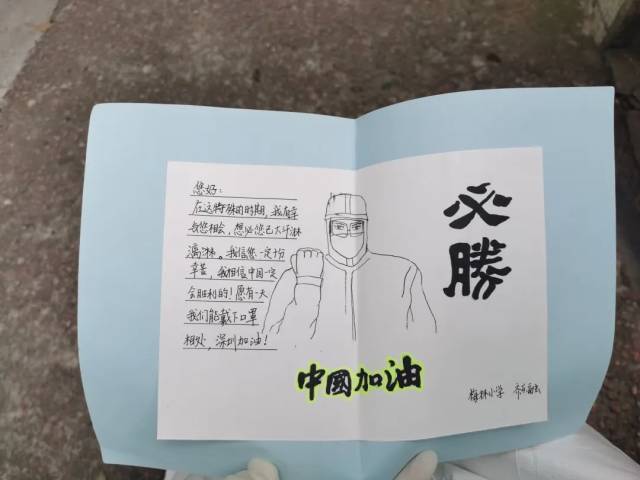 您好：
在这特殊的时期，我有幸
与您相会，想必您已大汗淋
漓淋。我信您一定十分
辛苦，我相信中国一定
会胜利的！愿有一天
我们能戴下口罩
相处，深圳加油！
必勝
中國加油
梅林小学